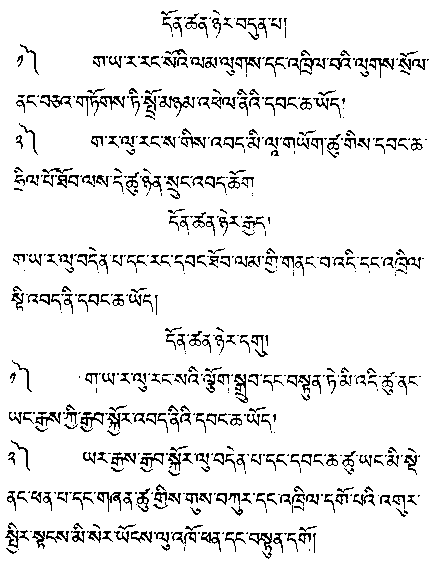 དོན་ཚན་ཉེར་བདུན་པ།
༡༽ ག་ཡ་ར་རང་སོའི་ལམ་ལུགས་དང་འཁྲིལ་བའི་ལུགས་སྲོལ་
ནང་བཅའ་གཏོགས་ཏི་སྤྲོ་མཉམ་འཕེལ་ནིའི་དབང་ཆ་ཡོད།
༢༽ ག་ར་ལུ་རང་ས་གིས་འབད་མི་ལཱ་གཡོག་ཚུ་གིས་དབང་ཆ་
ཧྲིལ་པོ་ཐོབ་ལས་དེ་ཚུ་ཉེན་སྲུང་འབད་ཆོག
དོན་ཚན་ཉེར་རྒྱད།
ག་ཡ་ར་ལུ་བདེན་པ་དང་རང་དབང་ཐོབ་ལམ་གྱི་གནང་བ་འདི་དང་འཁྲིལ་
སྟི་འབད་ནི་དབང་ཆ་ཡོད།
དོན་ཚན་ཉེར་དགུ།
༡༽ ག་ཡ་ར་ལུ་རང་སའི་ལྕོག་སྒྲུབ་དང་བསྟུན་ཏེ་མི་འདི་ཚུ་ནང་
ཡང་རྒྱས་ཀྱི་རྒྱབ་སྐྱོར་འབད་ནིའི་དབང་ཆ་ཡོད།
༢༽ ཡར་རྒྱས་རྒྱབ་སྐྱོར་ལུ་བདེན་པ་དང་དབང་ཆ་ཚུ་ཡང་མི་སྡེ་
ནང་ཕན་པ་དང་གཞན་ཚུ་གྱིས་གུས་བཀུར་དང་འཁྲིལ་དགོ་པའི་འགུར་
སྤྱིར་སྟངས་མི་སེར་ཡོངས་ལུ་འཁོ་ཕན་དང་བསྟུན་དགོ།